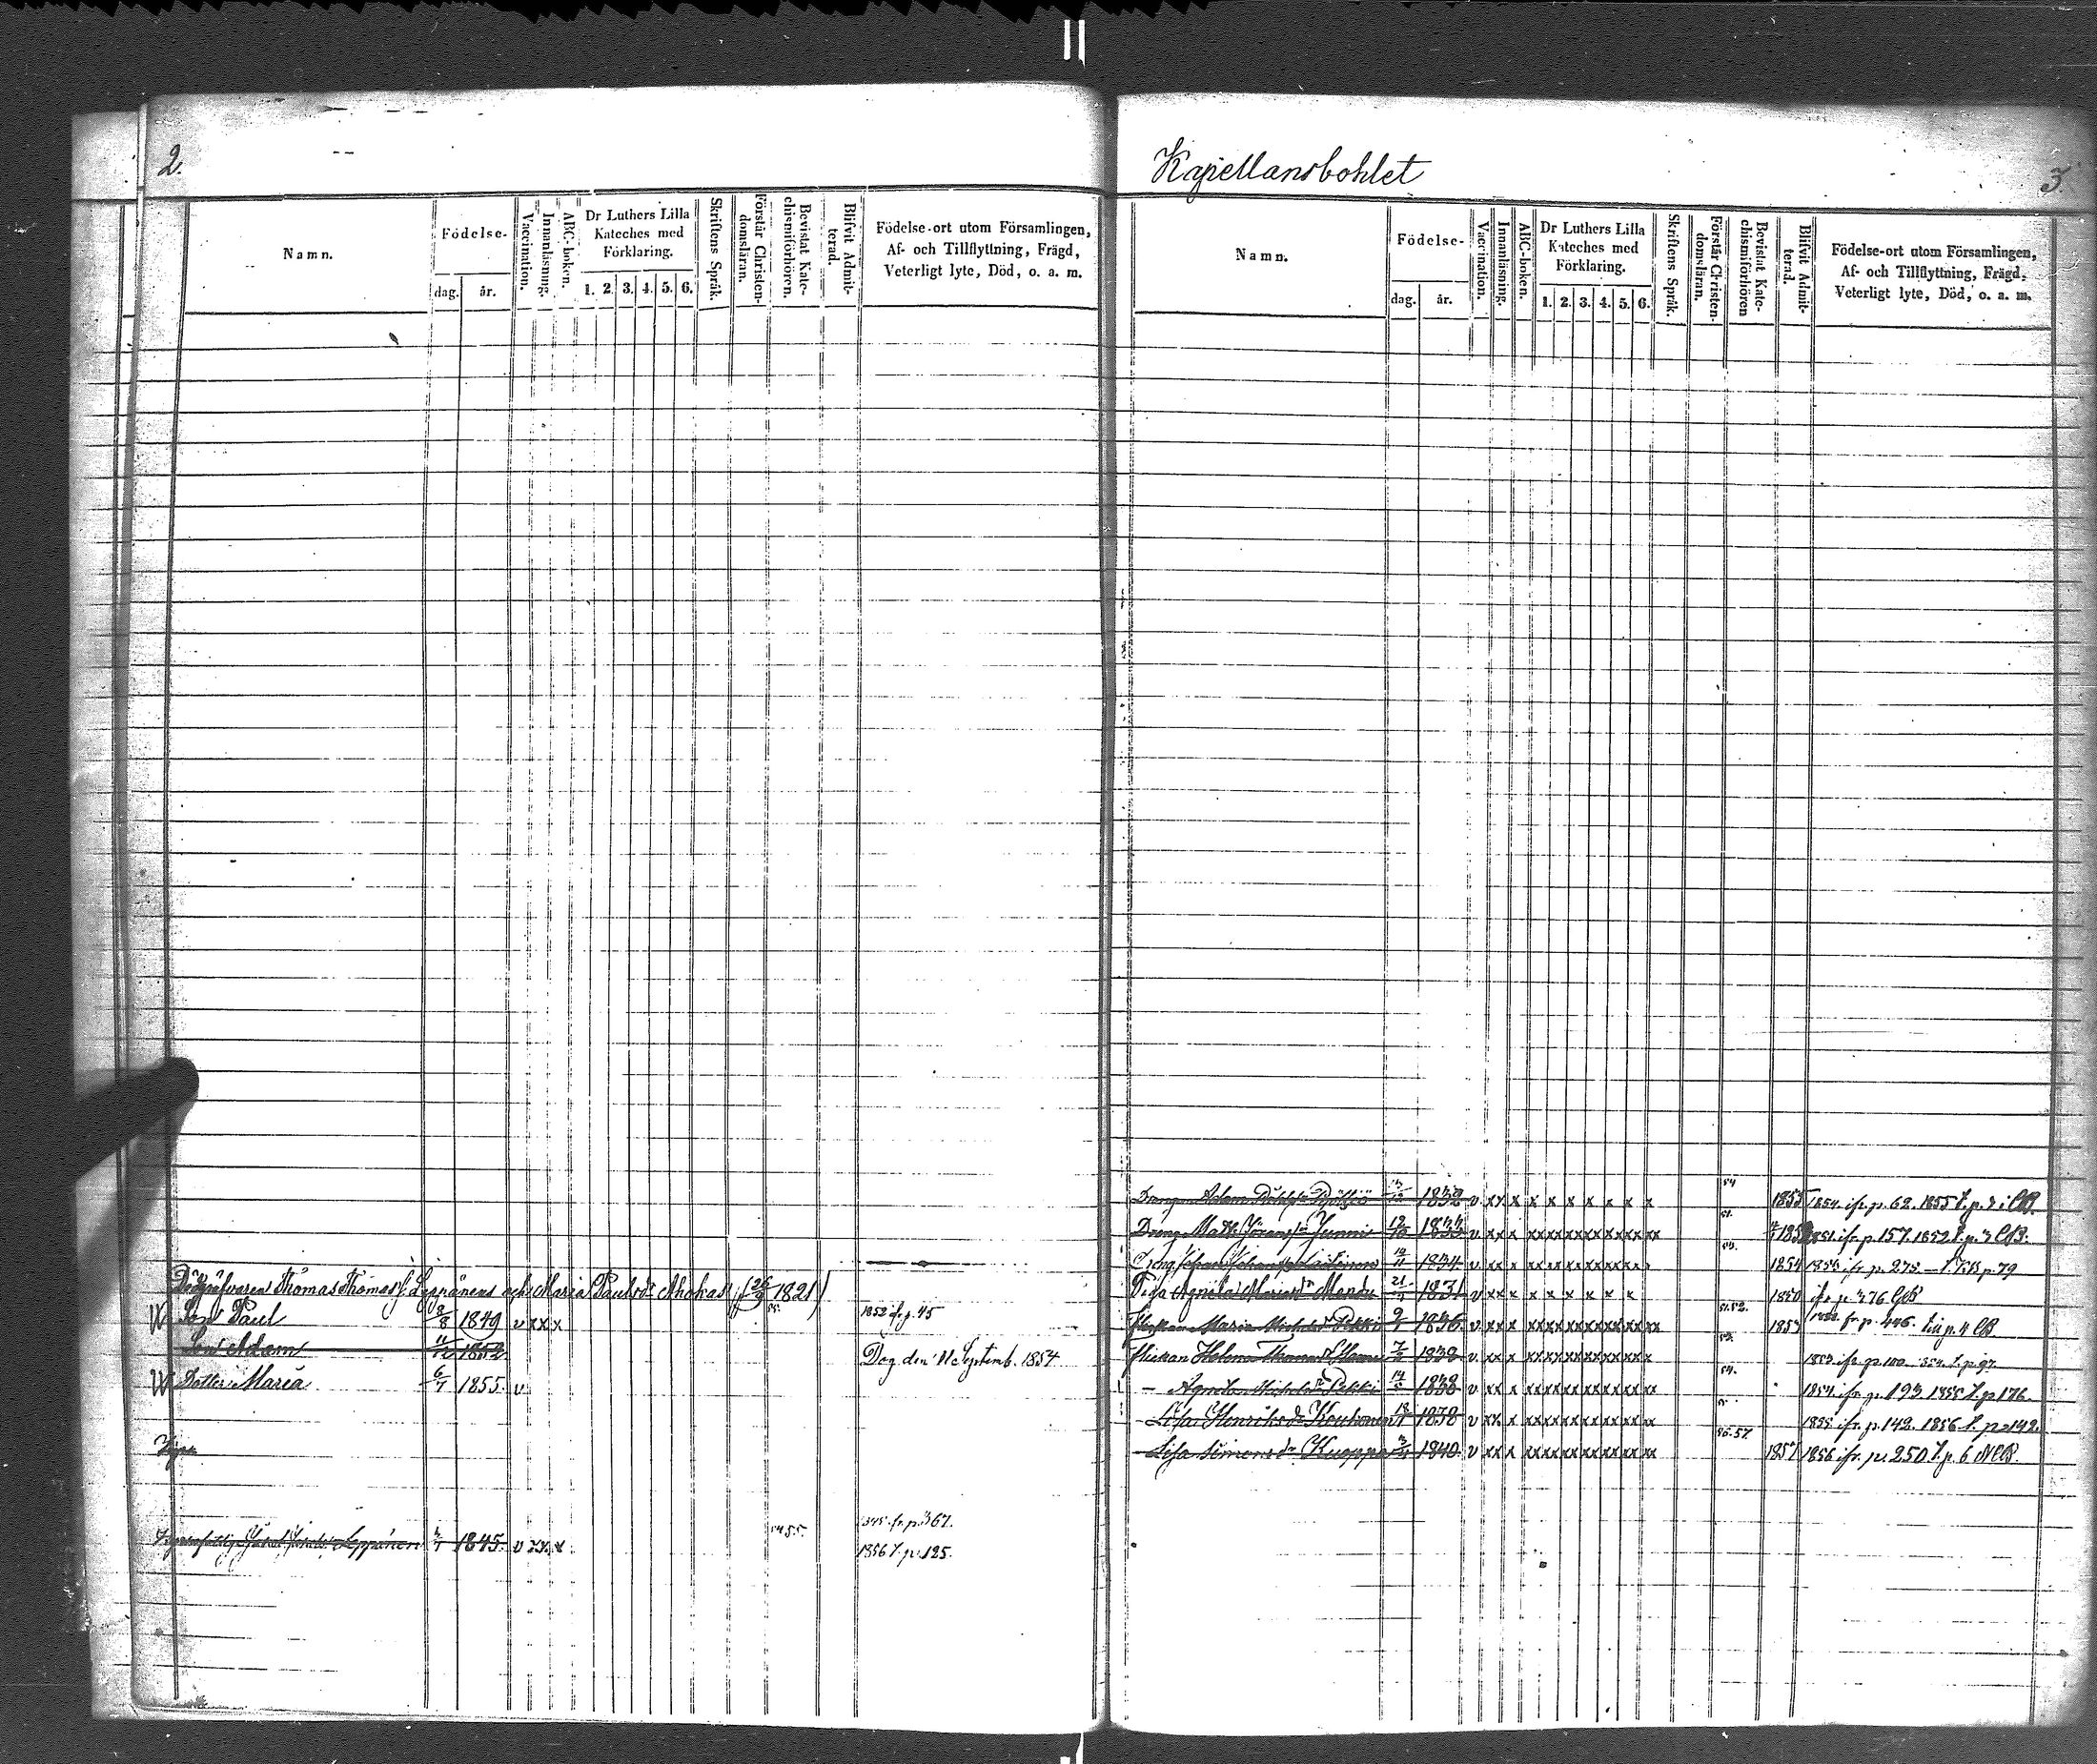 2.
Namn.
Födelse-
dag. år.
Vaccination.
Innanläsning.
ABC-boken.
Dr Luthers Lilla
Kateches med
Förklaring.
1. 2. 3. 4. 5. 6.
Skriftens Språk.
Förstår Christen-
domsläran.
Bevistat Kate-
chismiförhören.
Blifvit Admit-
terad.
Födelse-ort utom Församlingen,
Af- och Tillflyttning, Frägd,
Veterligt lyte, Död, o. a. m.
Thomas Thomas f. Leppänens och Maria Paulsdr Ahokas (26/9 1821)
Son Paul 8/8 1849 v xx x 1852 ifr. p. 45
Son Adam 11/12 1852 Dog den 11 Septemb. 1854
Dotter Maria 6/7 1855 v
Leppänen 1845. v xx. x 54 55. 1845 fr. p. 367.
1856 t. p. 125.
Kapellansbohlet
3.
Namn.
Födelse-
dag. år.
Vaccination.
Innanläsning.
ABC-boken.
Dr Luthers Lilla
Kateches med
Förklaring.
1. 2. 3. 4. 5. 6.
Skriftens Språk.
Förstår Christen-
domsläran.
Bevistat Kate-
chismiförhören
Blifvit Admit-
terad.
Födelse-ort utom Församlingen,
Af- och Tillflyttning, Frägd,
Veterligt lyte, Död, o. a. m.
Dreng Adam 1832 v xx x x x x x x x 54 1855 1854 ifr. p. 62. 1855 t. p. 2 i CB.
Dreng Math. Göransson 12/10 1833 v xx x xxxxxxxxxxxx 51. 1851 ifr. p. 157. 1852 t. p. 3 CB.
Johan 1834 v xx x 53. 1854 1853 ifr. p. 273
Agneta 21 1831 v xx x x x x x x x 1850 ifr. p. 376 CB
Flickan Maria Michelsdr Pekki 9 1836. v xx x xxxxxxxxxxxx 51.52. 1853 fr. p. 446. t. p. 4 CB
Flickan Helena 1838 v xx x xxxxxxxxxxxx 53. 1853 ifr. p. 100. 1854 t. p. 97
— Agneta Michelsdr Pekki 1838 v xx x xxxxxxxxxxxx 54. 1854 ifr. p. 193. 1855 t. p. 176.
Lisa Henriksdr 18 1838 v xx x xxxxxxxxxxxx 1855 ifr. p. 142. 1856 t. p. 142.
Lisa Simonsdr Kuoppa 1840. v xx x xxxxxxxxxxxx 56.57. 1857 1856 ifr. p. 250 t. p. 6 NCB.